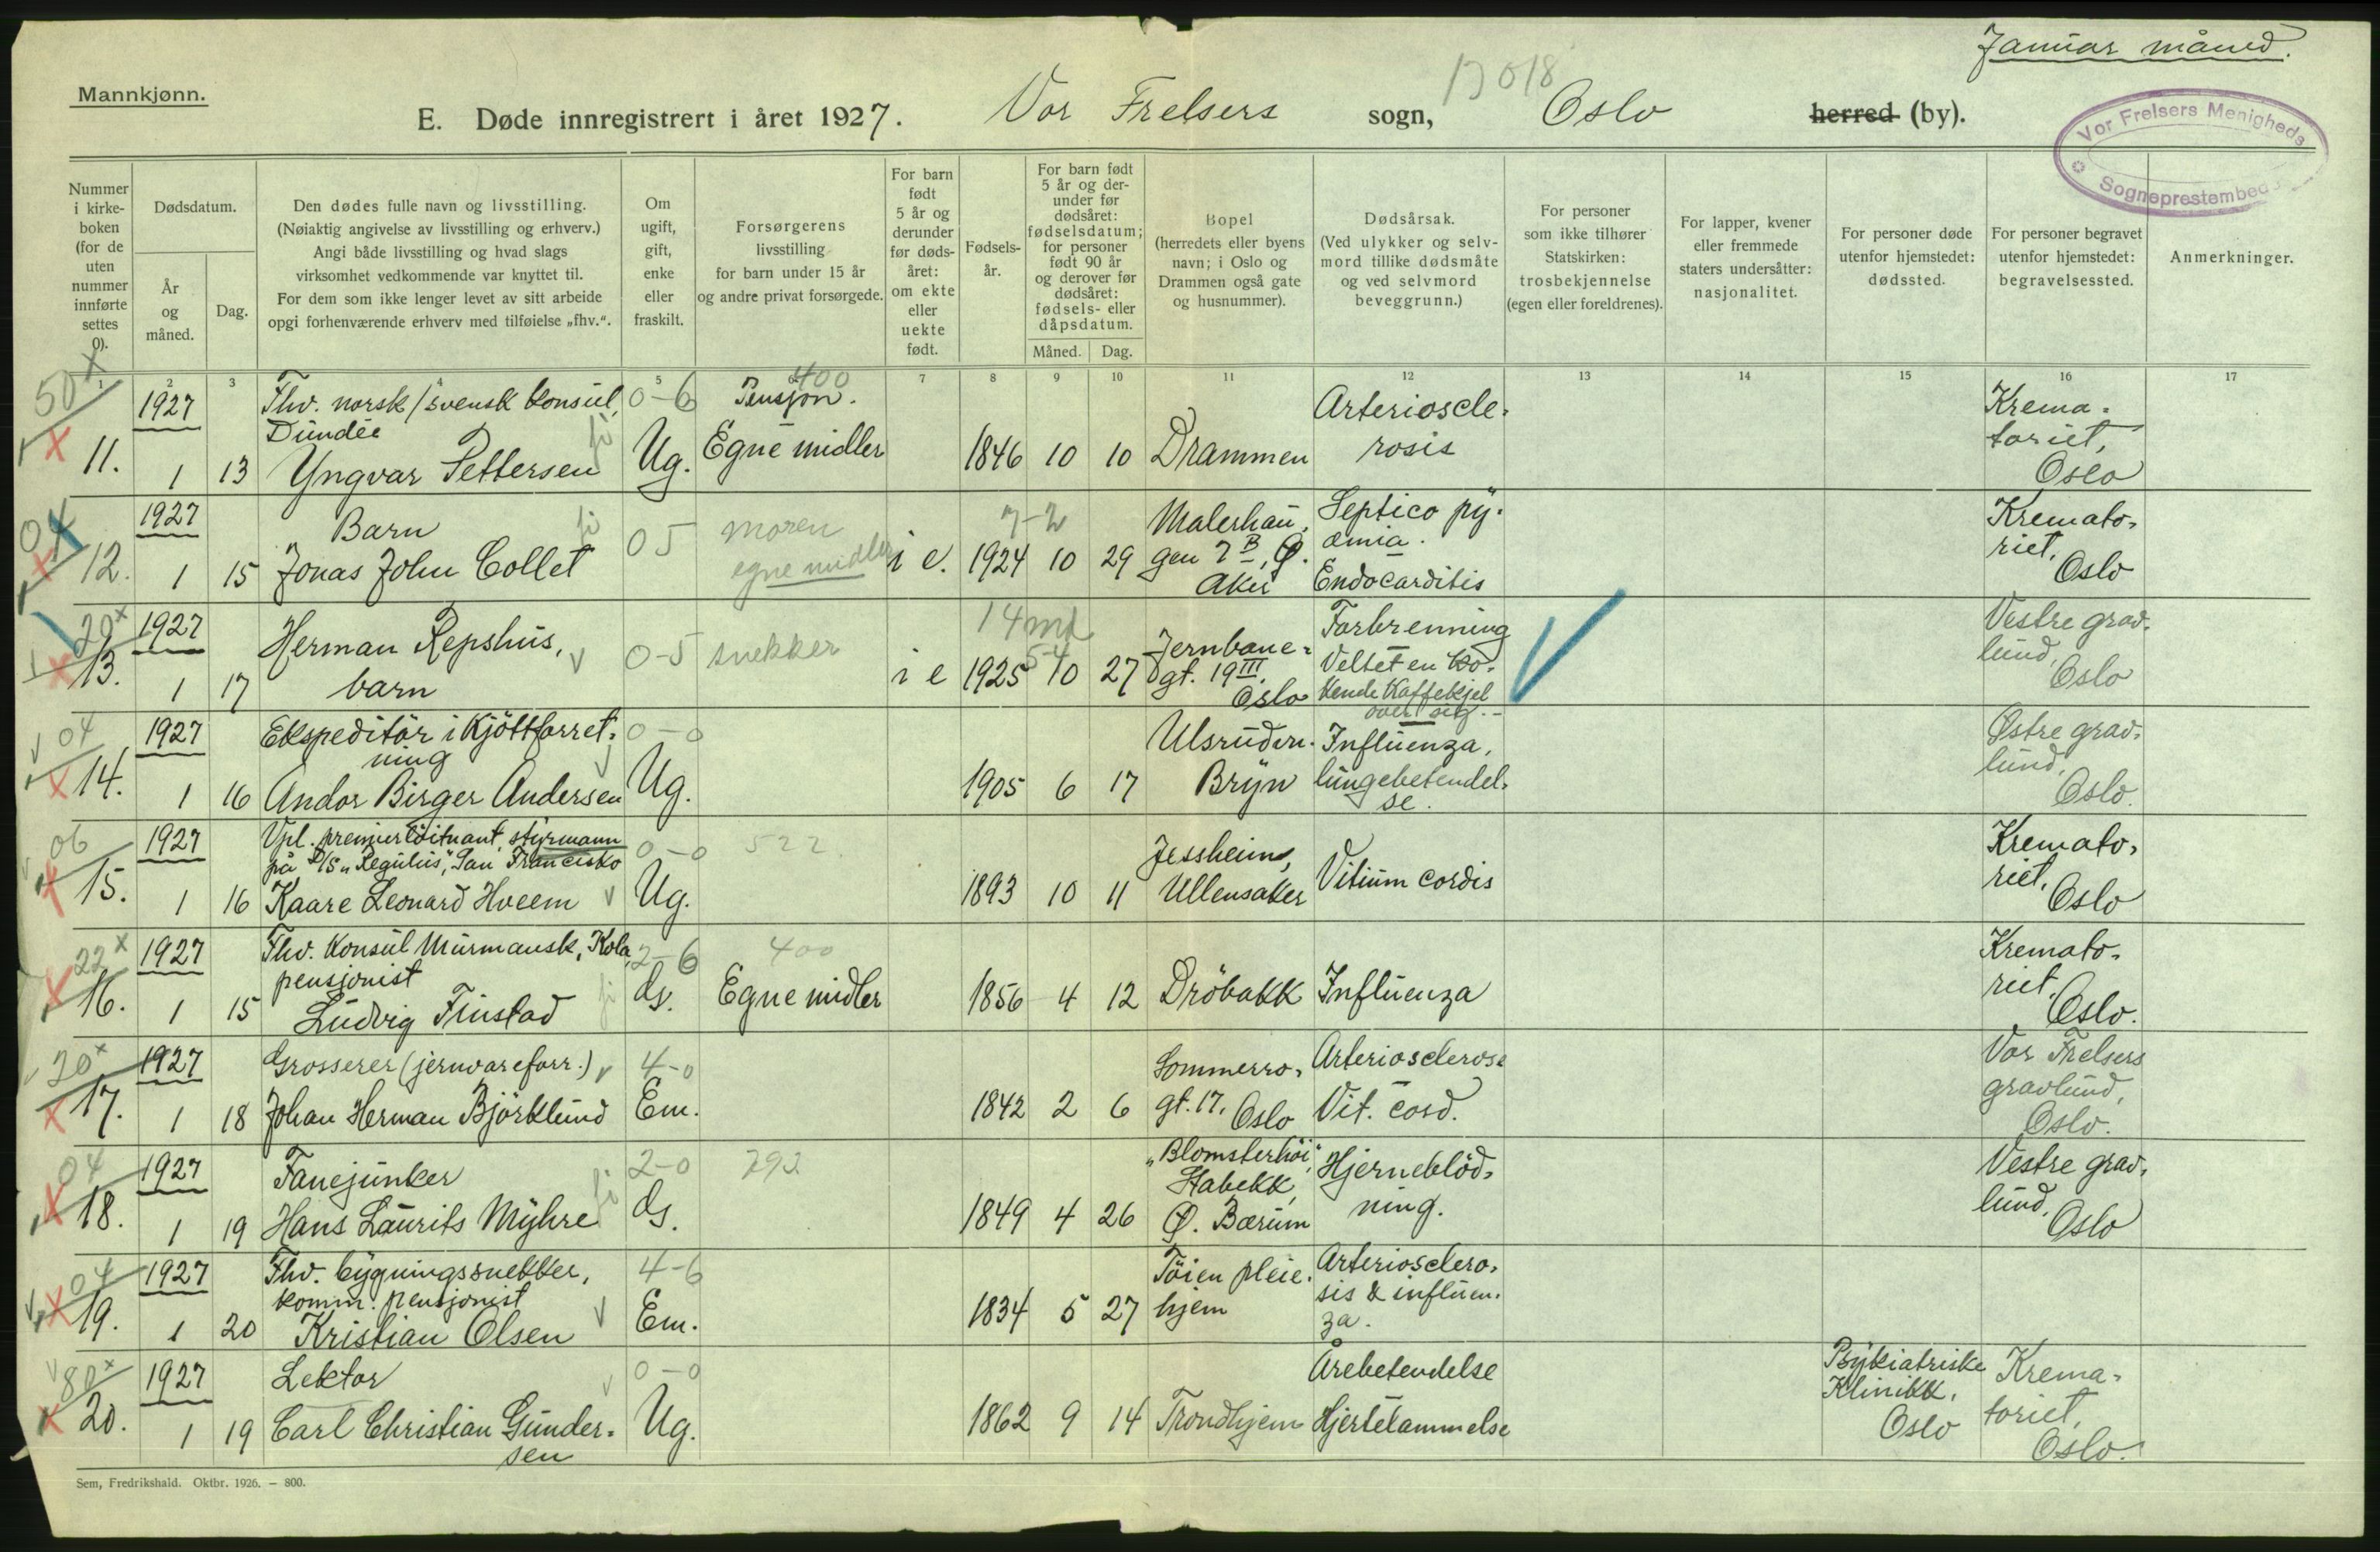 Januar måned.
Mannkjønn.
13018
E. Døde innregistrert i året 1927. Vor Frelsers sogn, Oslo herred (by).
Vor Frelsers Menigheds
Sogneprestembede
Nummer i kirkeboken (for de uten nummer innførte settes 0).
Dødsdatum.
År og måned.
Dag.
Den dødes fulle navn og livsstilling.
(Nøiaktig angivelse av livsstilling og erhverv.)
Angi både livsstilling og hvad slags
virksomhet vedkommende var knyttet til.
For dem som ikke lenger levet av sitt arbeide
opgi forhenværende erhverv med tilføielse „fhv.“.
Om ugift, gift, enke eller fraskilt.
Forsørgerens
livsstilling
for barn under 15 år
og andre privat forsørgede.
For barn født 5 år og derunder før dødsåret: om ekte eller uekte født.
Fødselsår.
For barn født 5 år og derunder før dødsåret: fødselsdatum; for personer født 90 år og derover før dødsåret: fødsels- eller dåpsdatum.
Måned.
Dag.
Bopel
(herredets eller byens
navn; i Oslo og
Drammen også gate
og husnummer).
Dødsårsak.
(Ved ulykker og selv-
mord tillike dødsmåte
og ved selvmord
beveggrunn.)
For personer
som ikke tilhører
Statskirken:
trosbekjennelse
(egen eller foreldrenes).
For lapper, kvener
eller fremmede
staters undersåtter:
nasjonalitet.
For personer døde
utenfor hjemstedet:
dødssted.
For personer begravet
utenfor hjemstedet:
begravelsessted.
Anmerkninger.
1 2 3 4 5 7 8 9 10 11 12 13 14 15 16 17
50 1927 Fhv. norsk/svensk konsul, 0-6 400 Pensjon. Arterioscle- Krema-
Dundee toriet,
11. 1 13 Yngvar Pettersen Ug. Egne midler 1846 10 10 Drammen rosis Oslo
04 1927 Barn 05 moren 7-2 Malerhau- Septico py- Kremato-
12. 1 15 Jonas John Collet egne midler i e. 1924 10 29 gen 7B, Ø. æmia. riet,
Aker Endocarditis Oslo
20 1927 Herman Repshus, 0-5 snekker 14 md Jernbane- Forbrenning Vestre grav-
5-4 Veltet en ko- lund,
13. 1 17 barn i e 1925 10 27 gt. 19III. kende Kaffekjel Oslo
Oslo over sig.-
04 1927 Ekspeditör i Kjöttforret- 0-0 Ulsrudvn. Influenza, Østre grav-
ning lund,
14. 1 16 Andor Birger Andersen Ug. 1905 6 17 Bryn lungebetendel- Oslo.
se.
06 1927 Vpl. premierlöitnant, styrmann 0-0 522 Jessheim, Kremato-
på D/S „Regulus“, San Francisko riet,
15. 1 16 Kaare Leonard Hveem Ug. 1893 10 11 Ullensaker Vitium cordis Oslo
22 1927 Fhv. Konsul Murmansk, Kola, 2-6 400 Kremato-
pensjonist riet,
16. 1 15 Ludvig Finstad G. Egne midler 1856 4 12 Dröbakk Influenza Oslo.
20 1927 Grosserer (jernvareforr.) 4-0 Sommerro- Arteriosclerose Vor Frelsers
gravlund,
17. 1 18 Johan Herman Björklund Em. 1842 2 6 gt. 17, Oslo Vit. cord. Oslo.
04 1927 Fanejunker 2-0 292 „Blomsterhöi“, Hjerneblöd- Vestre grav-
Stabekk, lund,
18. 1 19 Hans Laurits Myhre G. 1849 4 26 Ø. Bærum ning. Oslo
04 1927 Fhv. bygningssnekker, 4-6 Töien pleie- Arteriosclero-
komm. pensjonist sis & influen-
19. 1 20 Kristian Olsen Em. 1834 5 27 hjem za.
80 1927 Lektor 0-0 Årebetendelse Psykiatriske Krema-
Klinikk, toriet,
20. 1 19 Carl Christian Gunder- Ug. 1862 9 14 Trondhjem Hjertelammelse Oslo Oslo.
sen
Sem, Fredrikshald. Oktbr. 1926. — 800.